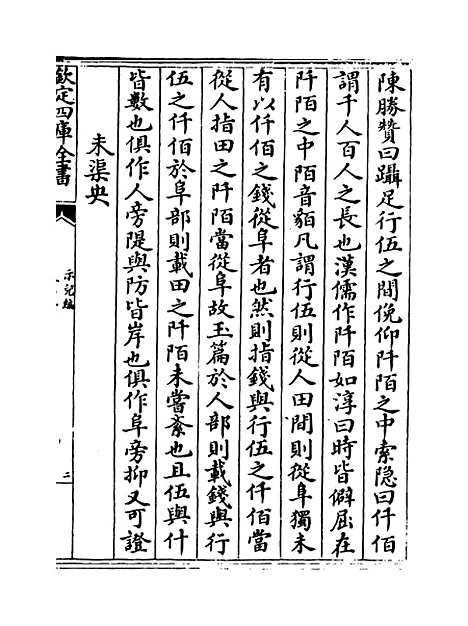 陳勝贊曰躡足行伍之間俛仰阡陌之中索隐曰仟佰
謂千人百人之長也漢儒作阡陌如淳曰時皆僻屈在
阡陌之中陌音貊凡謂行伍則從人田間則從阜獨未
有以仟佰之錢從阜者也然則指錢與行伍之仟佰當
從人指田之阡陌當從阜故玉篇於人部則載錢與行
伍之仟佰於阜部則載田之阡陌未嘗紊也且伍與什
皆數也俱作人旁隄與防皆岸也俱作阜旁抑又可證
未渠央
欽定四庫全書
示兒編
三